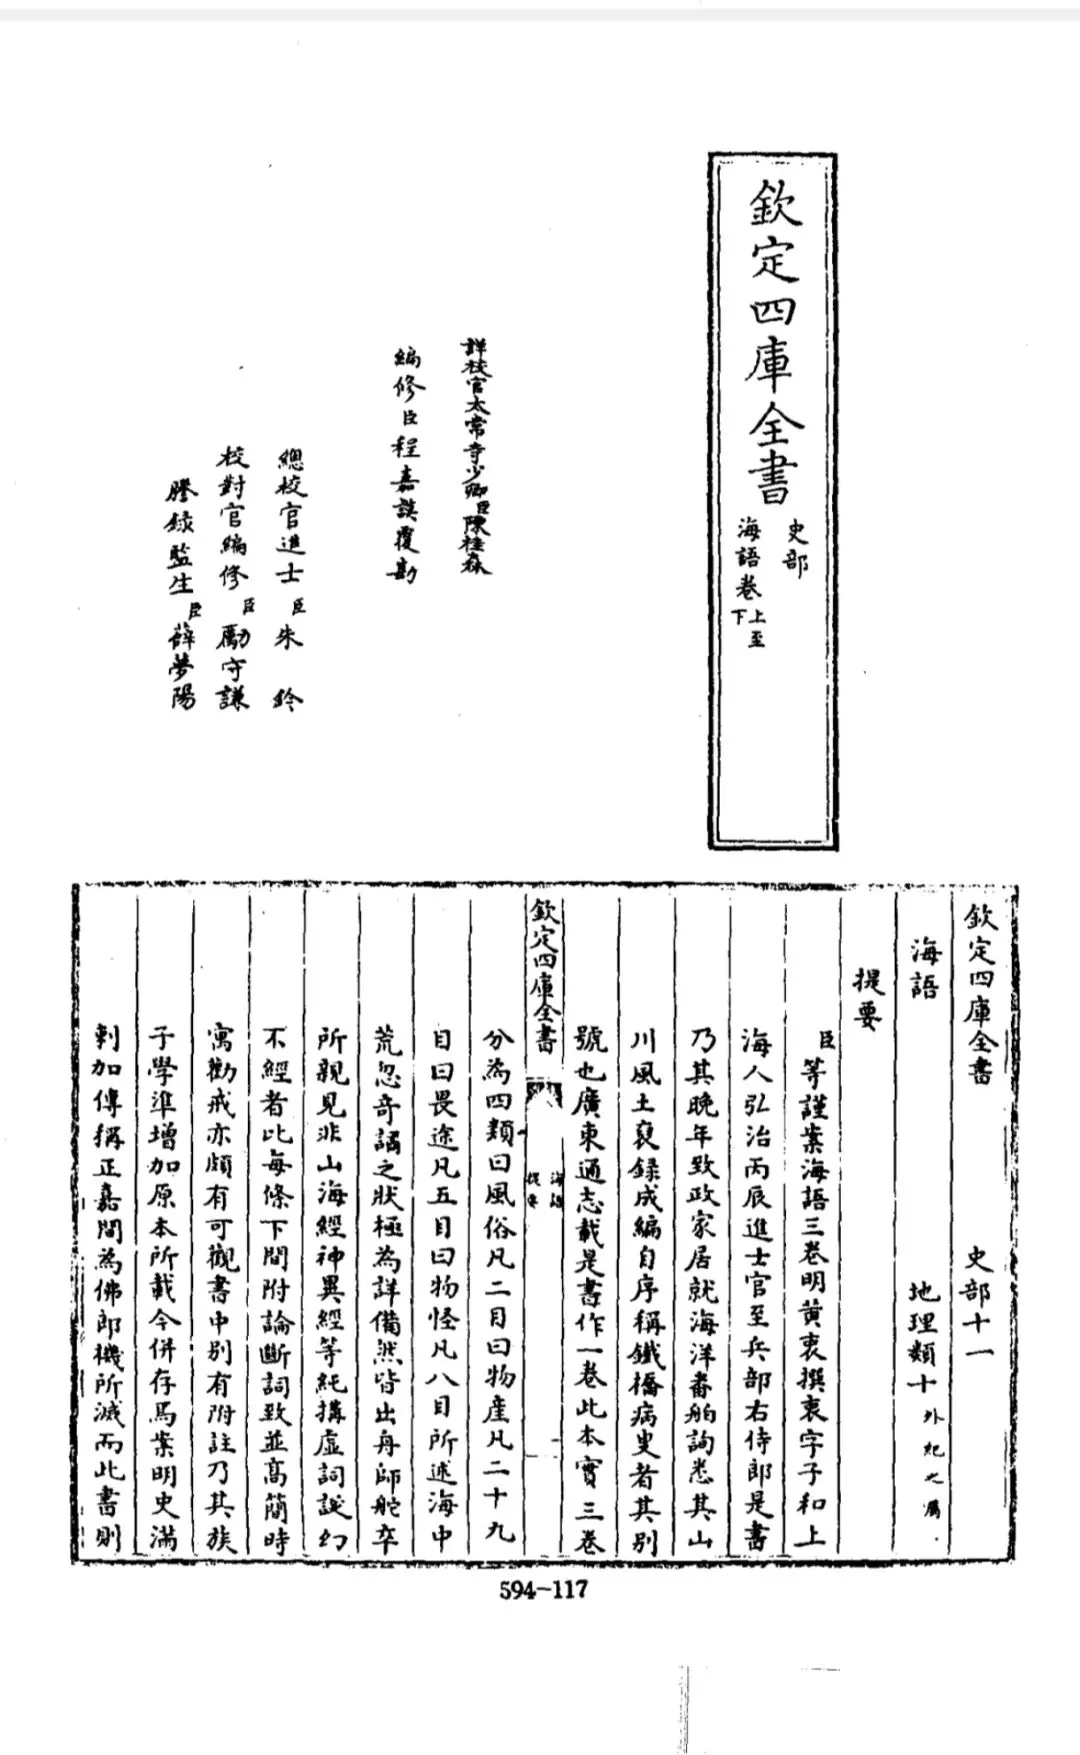 欽定四庫全書
史部
海語卷上至下
詳校官太常寺少卿臣陳桂森
編修臣程嘉謨覆勘
總校官進士臣朱鈐
校對官編修臣勵守謙
謄錄監生臣薛夢陽
欽定四庫全書 史部十一
海語 地理類十外紀之屬
提要
臣等謹案海語三卷明黄衷撰衷字子和上
海人弘治丙辰進士官至兵部右侍郎是書
乃其晚年致政家居就海洋番舶詢悉其山
川風土裒録成編自序稱鐵橋病叟者其别
號也廣東通志載是書作一卷此本實三卷
欽定四庫全書
海語
提要
一
分為四類曰風俗凡二目曰物產凡二十九
目曰畏途凡五目曰物怪凡八目所述海中
荒忽奇譎之狀極為詳備然皆出舟師舵卒
所親見非山海經神異經等純搆虛詞誕幻
不經者比每條下間附論斷詞致並髙簡時
寓勸戒亦頗有可觀書中别有附註乃其族
子學準增加原本所載今併存焉案明史滿
剌加傳稱正嘉間為佛郎機所滅而此書則
594-117